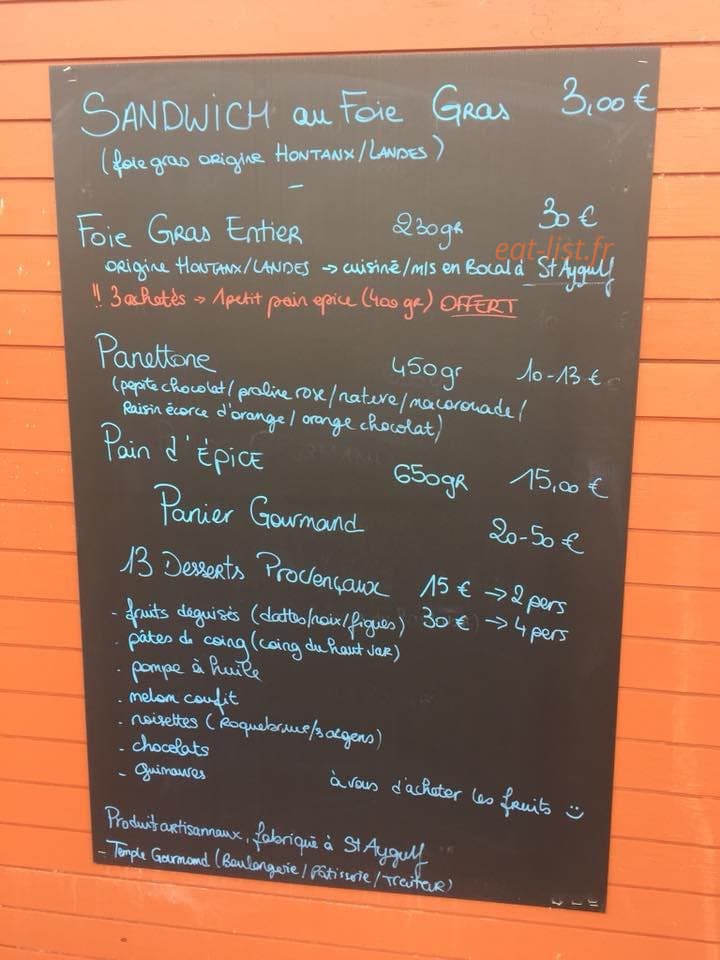 SANDWICH au Foie Gras 3,00 €
(foie gras origine HONTANX/LANDES)
Foie Gras Entier 230gr 30 €
eat-list.fr
origine HONTANX/LANDES → cuisiné/mis en Bocal à St Aygulf
!! 3 achetés → 1 petit pain epice (400 gr) OFFERT
Panettone 450gr 10-13 €
(pepite chocolat/praline rose/nature/macaronade/
Raisin écorce d'orange/orange chocolat)
Pain d'ÉPICE 650gr 15,00 €
Panier Gourmand 20-50 €
13 Desserts Provençaux 15 € → 2 pers
- fruits deguisés (dattes/noix/figues) 30 € → 4 pers
- pâtes de coing (coing du haut var)
- pompe à huile
- melon confit
- noisettes (Roquebrune/s argens)
- chocolats
- guimauves
à vous d'acheter les fruits :)
Produits artisannaux, fabriqué à St Aygulf
- Temple Gourmand (Boulangerie/Patisserie/Traiteur)